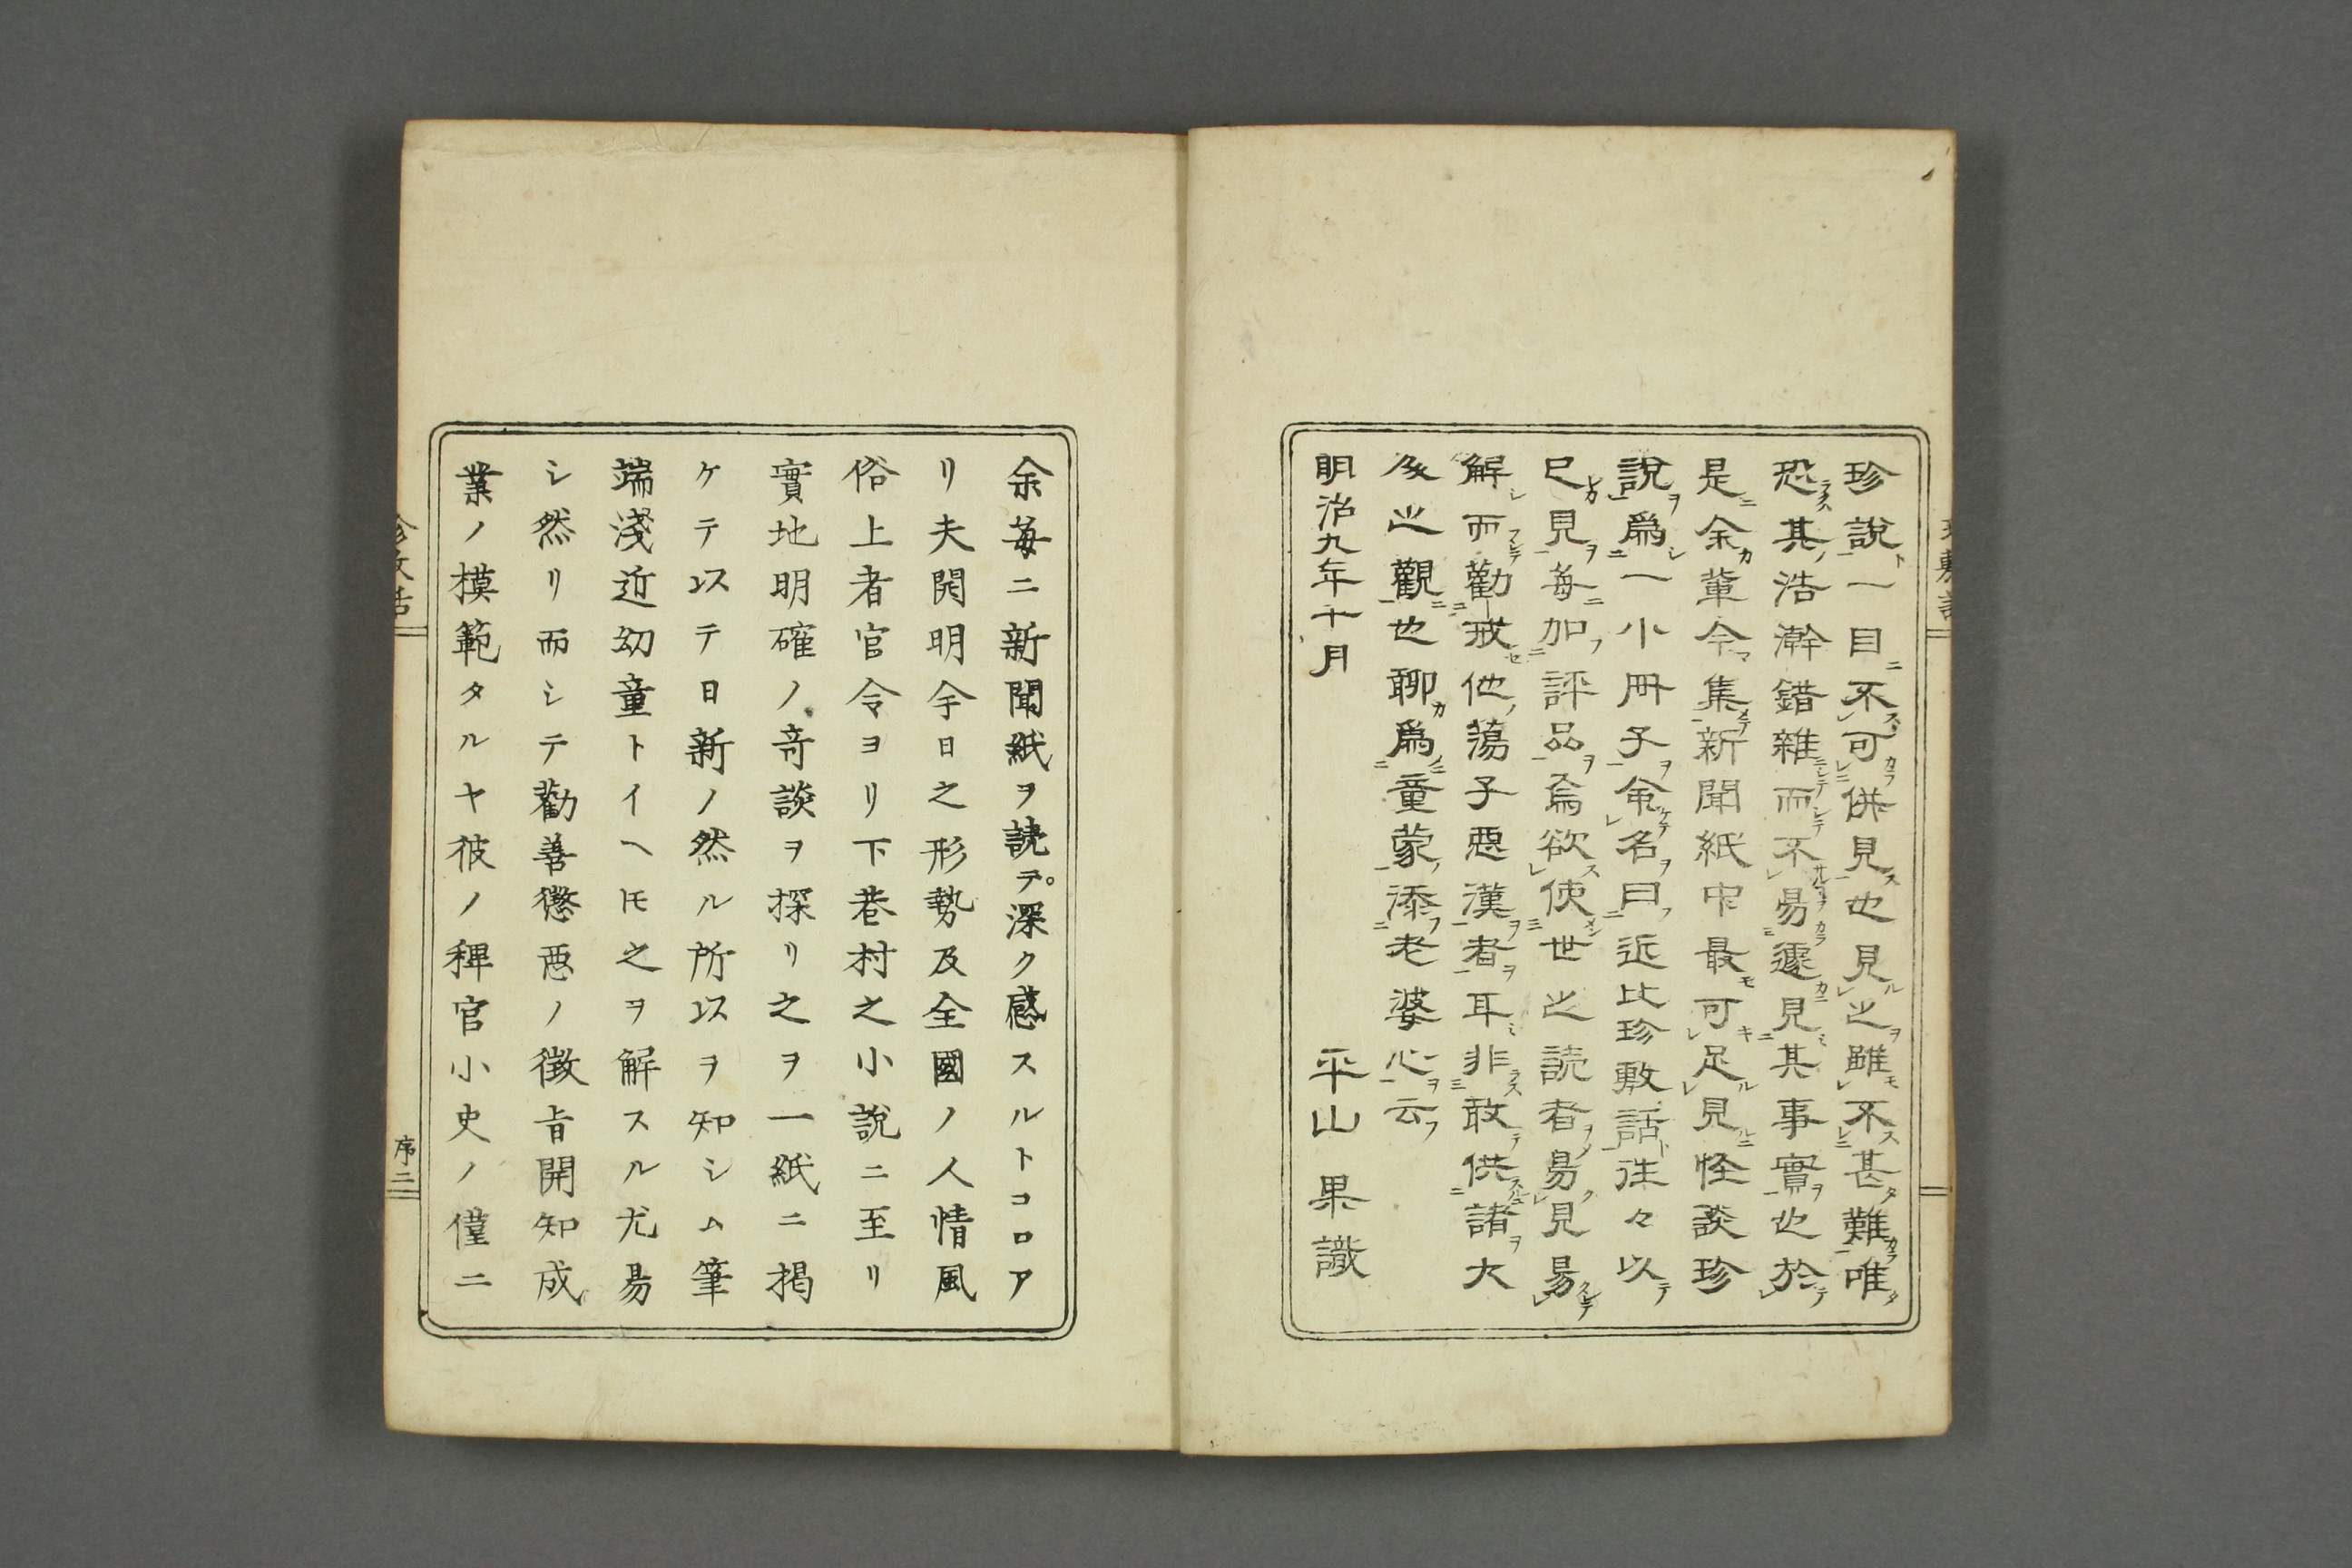 珍說一目不可併見也見之雖不甚難唯
恐其浩澣錯雜而不易遽見其事實也於
是余輩令集新聞紙中最可足見怪談珍
說爲一小冊子命名曰近比珍敷話往々以
已見每加評品焉欲使世之読者易見易
解而勸戒他蕩子惡漢者耳非敢供諸大
之觀也聊爲童蒙添老婆心云
明治九年十月
平山果識
余每ニ新聞紙ヲ読テ。深ク感スルトコロア
リ夫開明今日之形勢及全國ノ人情風
俗上者官令ヨリ下巷村之小說ニ至リ
實地明確ノ奇談ヲ探リ之ヲ一紙ニ揭
ケテ以テ日新ノ然ル所以ヲ知シム筆
端淺近幼童トイヘ𪜈之ヲ解スル尤易
シ然リ而シテ勸善懲悪ノ徴旨開知成
業ノ模範タルヤ彼ノ稗官小史ノ僅ニ
序二